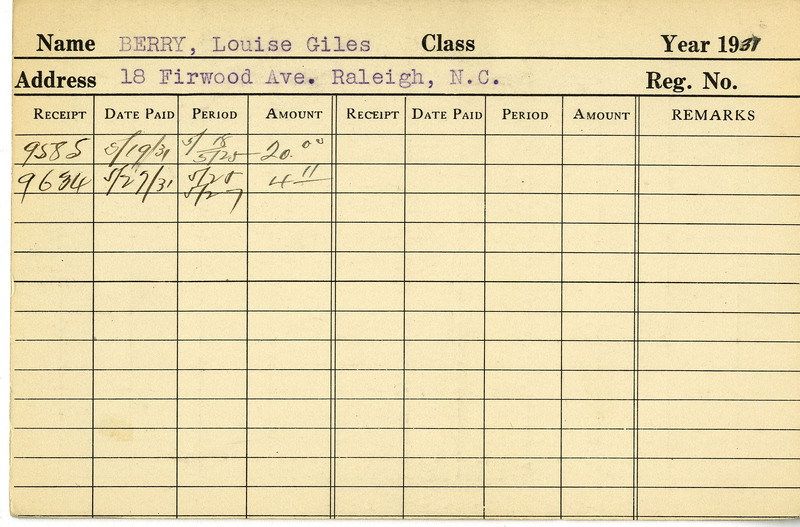 Name BERRY, Louise Giles Class Year 1931
Address 18 Firwood Ave. Raleigh, N.C. Reg. No.
RECEIPT DATE PAID PERIOD AMOUNT RECEIPT DATE PAID PERIOD AMOUNT REMARKS
9585 5/19/31 5/18 5/25 20.00
9634 5/27/31 5/25 5/27 4"